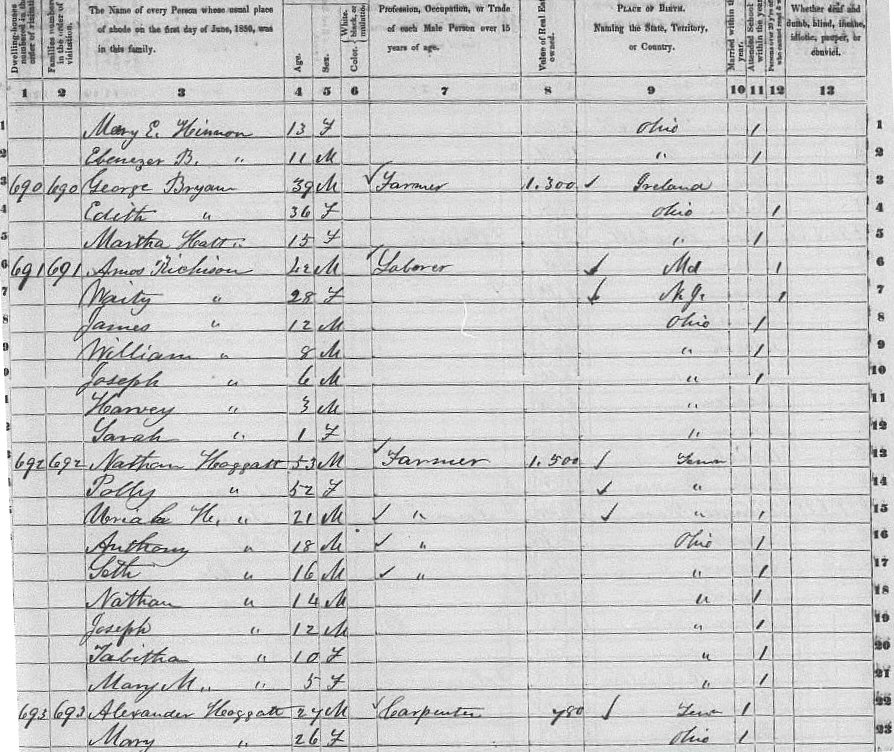 Dwelling-houses numbered in the order of visitation.
Families numbered in the order of visitation.
The Name of every Person whose usual place of abode on the first day of June, 1850, was in this family.
Age.
Sex.
Color. White, black, or mulatto.
Profession, Occupation, or Trade of each Male Person over 15 years of age.
Value of Real Estate owned.
PLACE OF BIRTH. Naming the State, Territory, or Country.
Married within the year.
Attended School within the year.
Whether deaf and dumb, blind, insane, idiotic, pauper, or convict.
1 2 3 4 5 6 7 8 9 10 11 12 13
1 Mary E. Hinmon 13 F Ohio / 1
2 Ebenezer B. " 11 M " / 2
3 690 690 George Bryan 39 M Farmer 1.300 Ireland 3
4 Edith " 36 F Ohio / 4
5 Martha Hatt 15 F " / 5
6 691 691 Amos Richison 42 M Laborer Md / 6
7 Waity " 28 F N.J. / 7
8 James " 12 M Ohio / 8
9 William " 8 M " / 9
Joseph " 6 M " / 10
Harvey " 3 M " 11
Sarah " 1 F " 12
692 692 Nathan Hoggatt 53 M Farmer 1.500 Tenn 13
Polly " 52 F " 14
Uriah H. " 21 M " " / 15
Anthony " 18 M " Ohio / 16
Seth " 16 M " " / 17
Nathan " 14 M " / 18
Joseph " 12 M " / 19
Tabitha " 10 F " / 20
Mary M. " 5 F " / 21
693 693 Alexander Hoggatt 27 M Carpenter 780 Tenn / 22
Mary " 26 F Ohio / 23